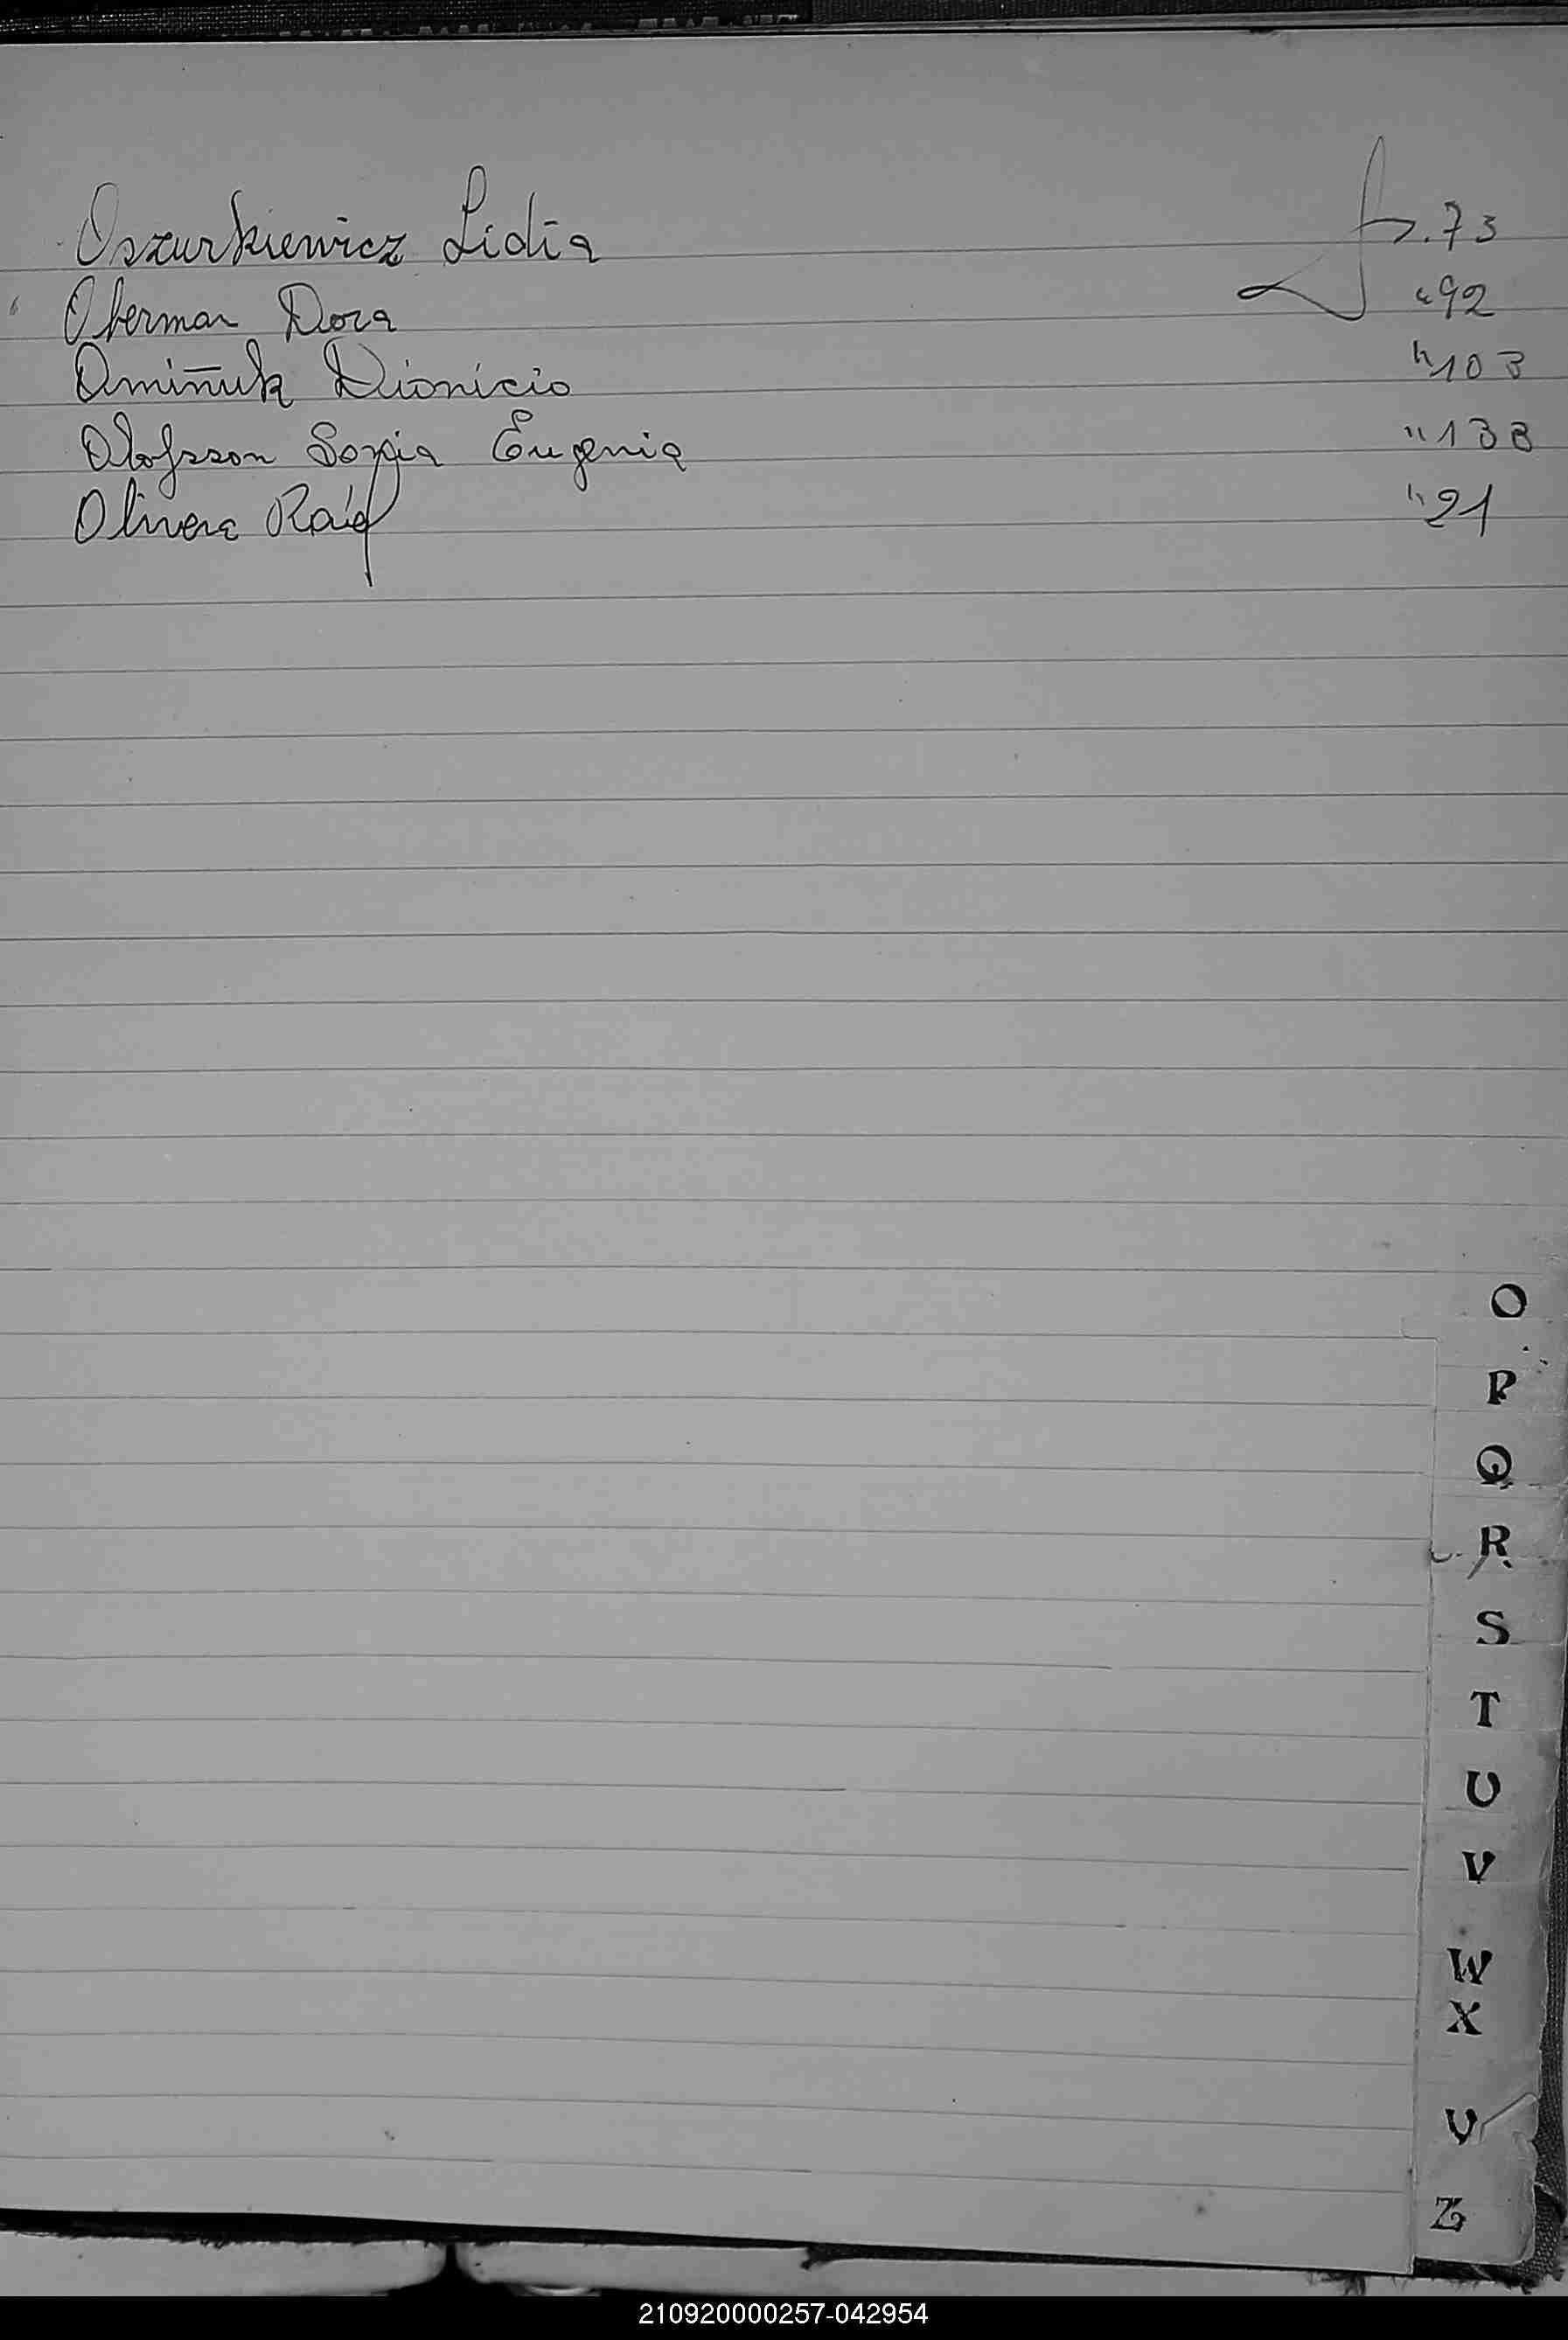 Oszurkiewicz Lidia fs. 73
Oberman Dora " 92
Omiñuk Dionicio " 103
Olofsson Sonia Eugenia " 138
Olivera Raúl " 21
O
P
Q
R
S
T
U
V
W
X
Y
Z
210920000257-042954